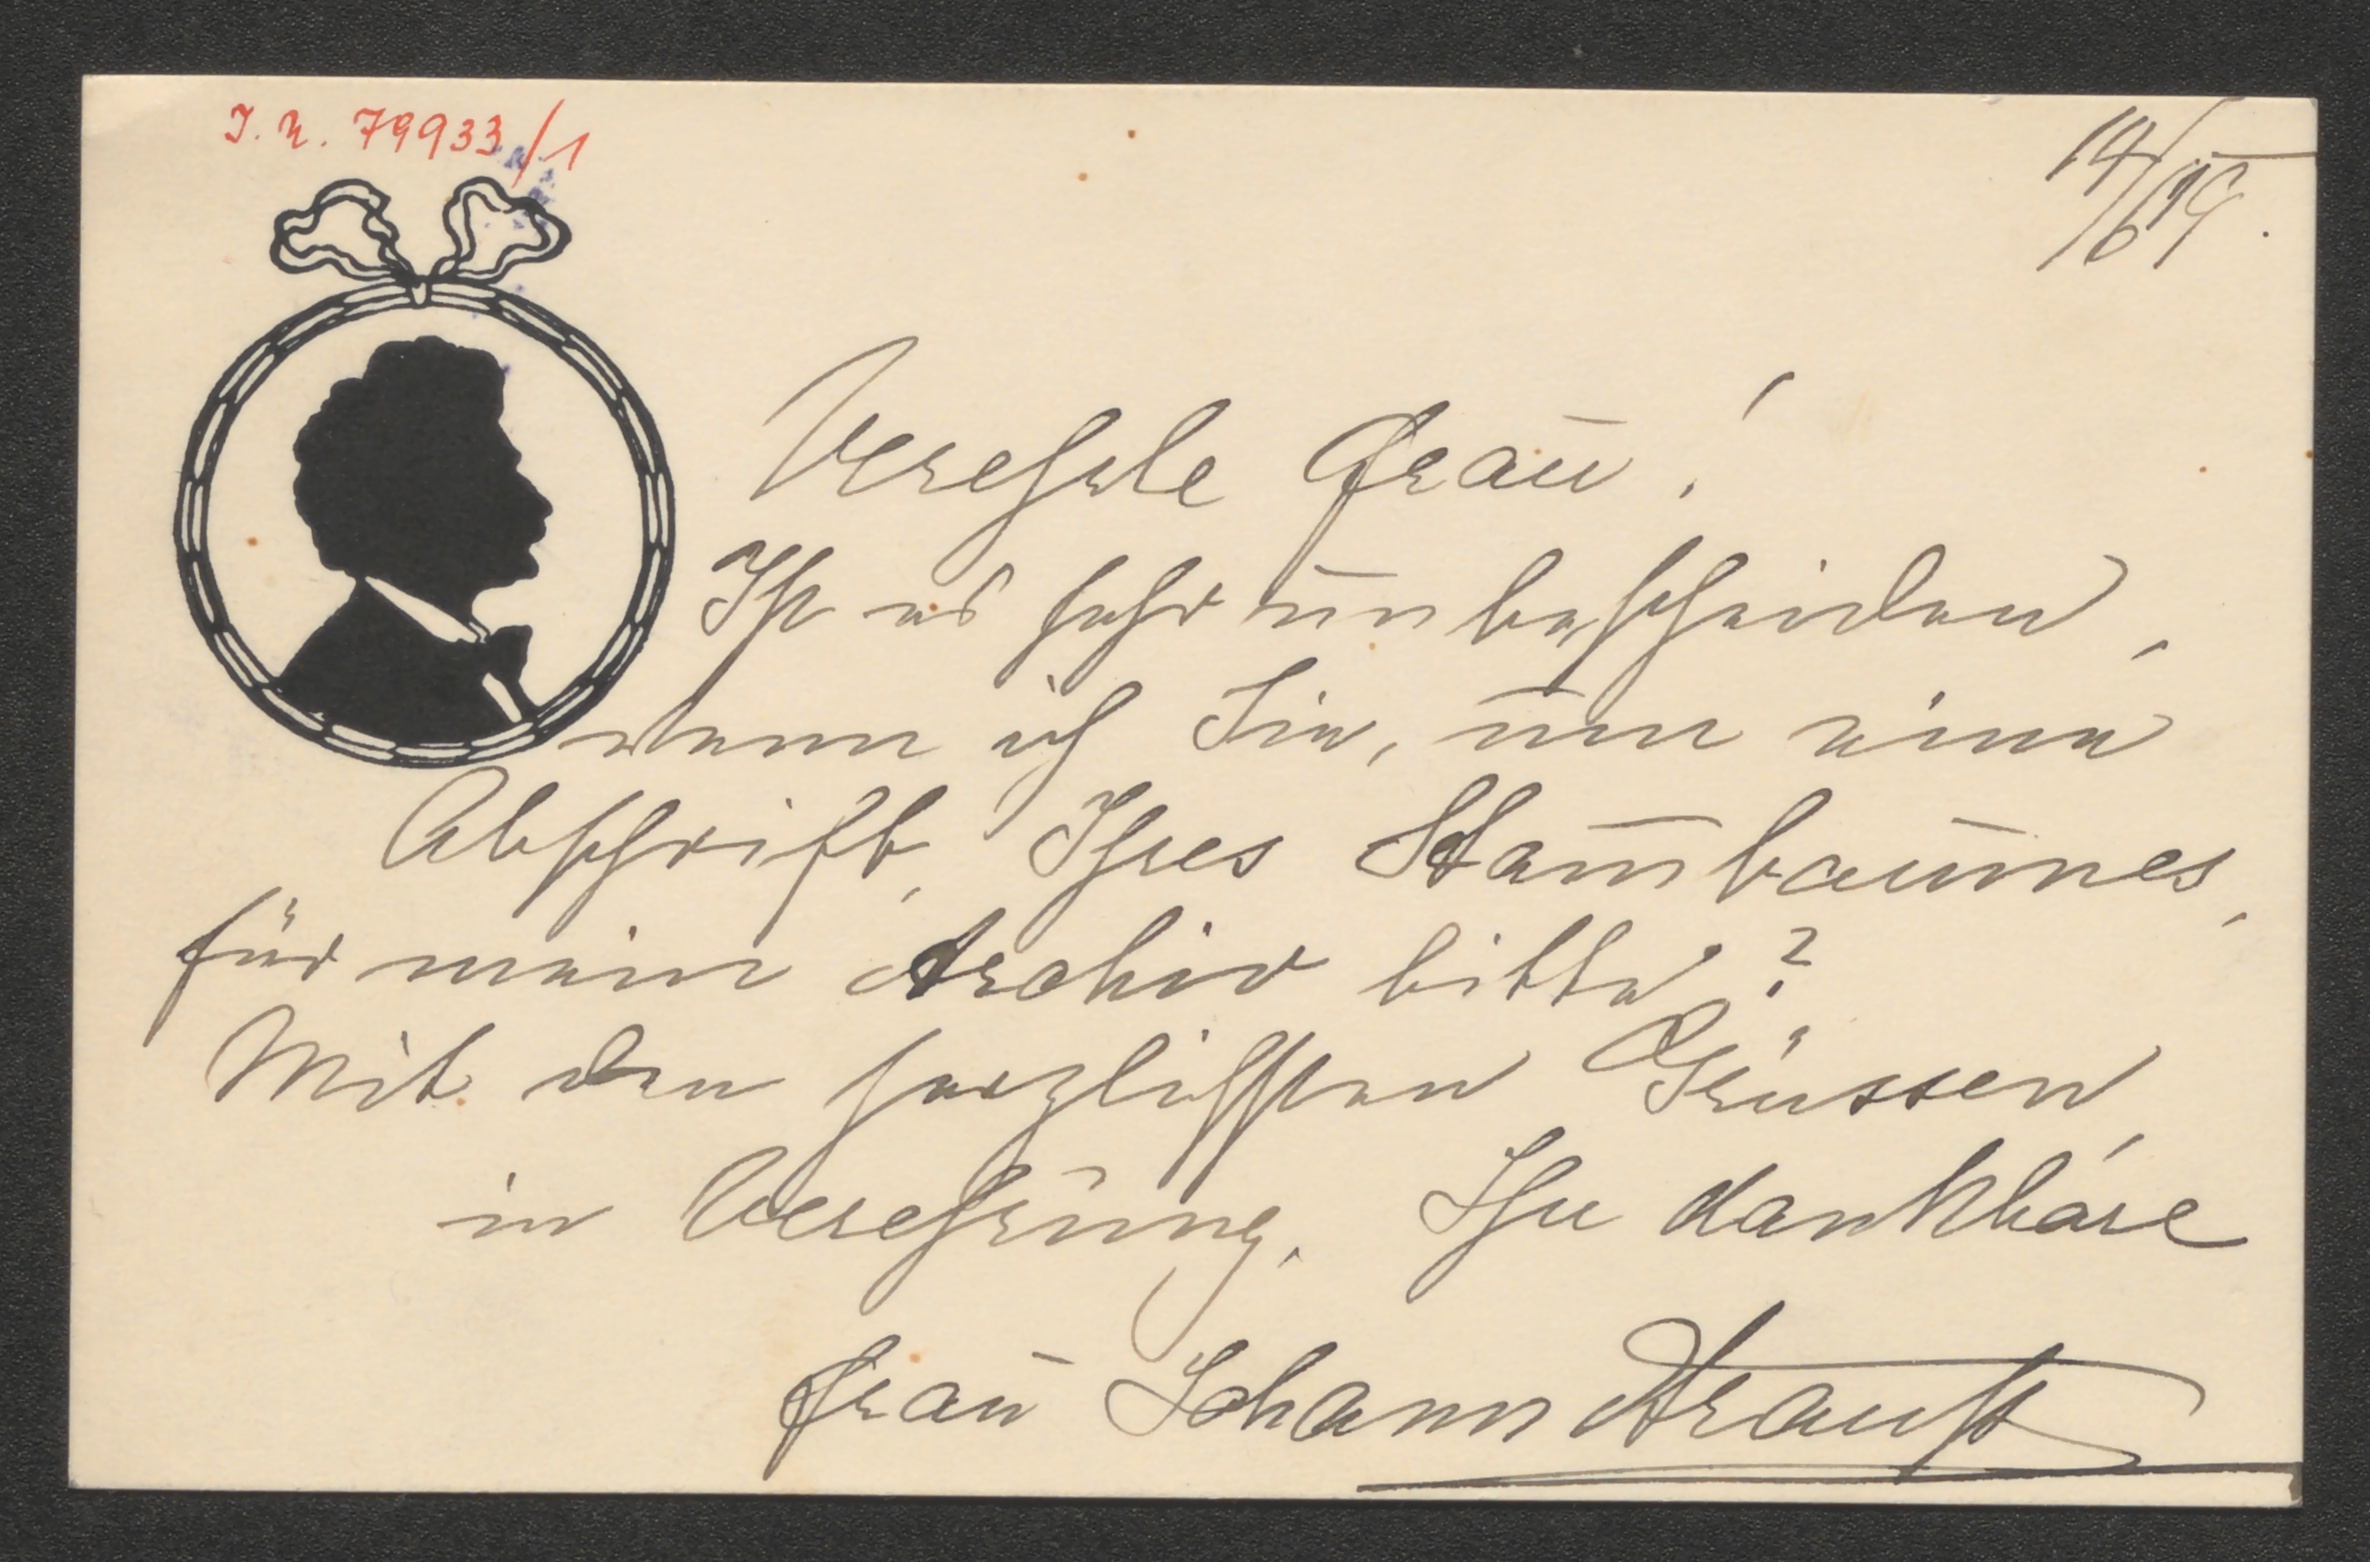 I. N. 79933/1
14/6 19.
Verehrte Frau!
Ist es sehr unbescheiden,
wenn ich Sie, um eine
Abschrift, Ihres Stam̅baumes,
für mein Archiv bitte?
Mit den herzlichsten Grüssen,
in Verehrung. Ihre dankbare
Frau Johann Strauß